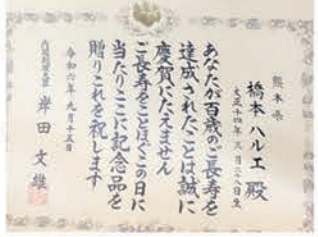 熊本県
橋本ハルエ 殿
大正十四年 三月二十日生
あなたが百歳のご長寿を
達成されたことは誠に
慶賀にたえません
ご長寿をことほぐこの日に
当たりここに記念品を
贈りこれを祝します
令和六年九月十五日
内閣総理大臣 岸田文雄